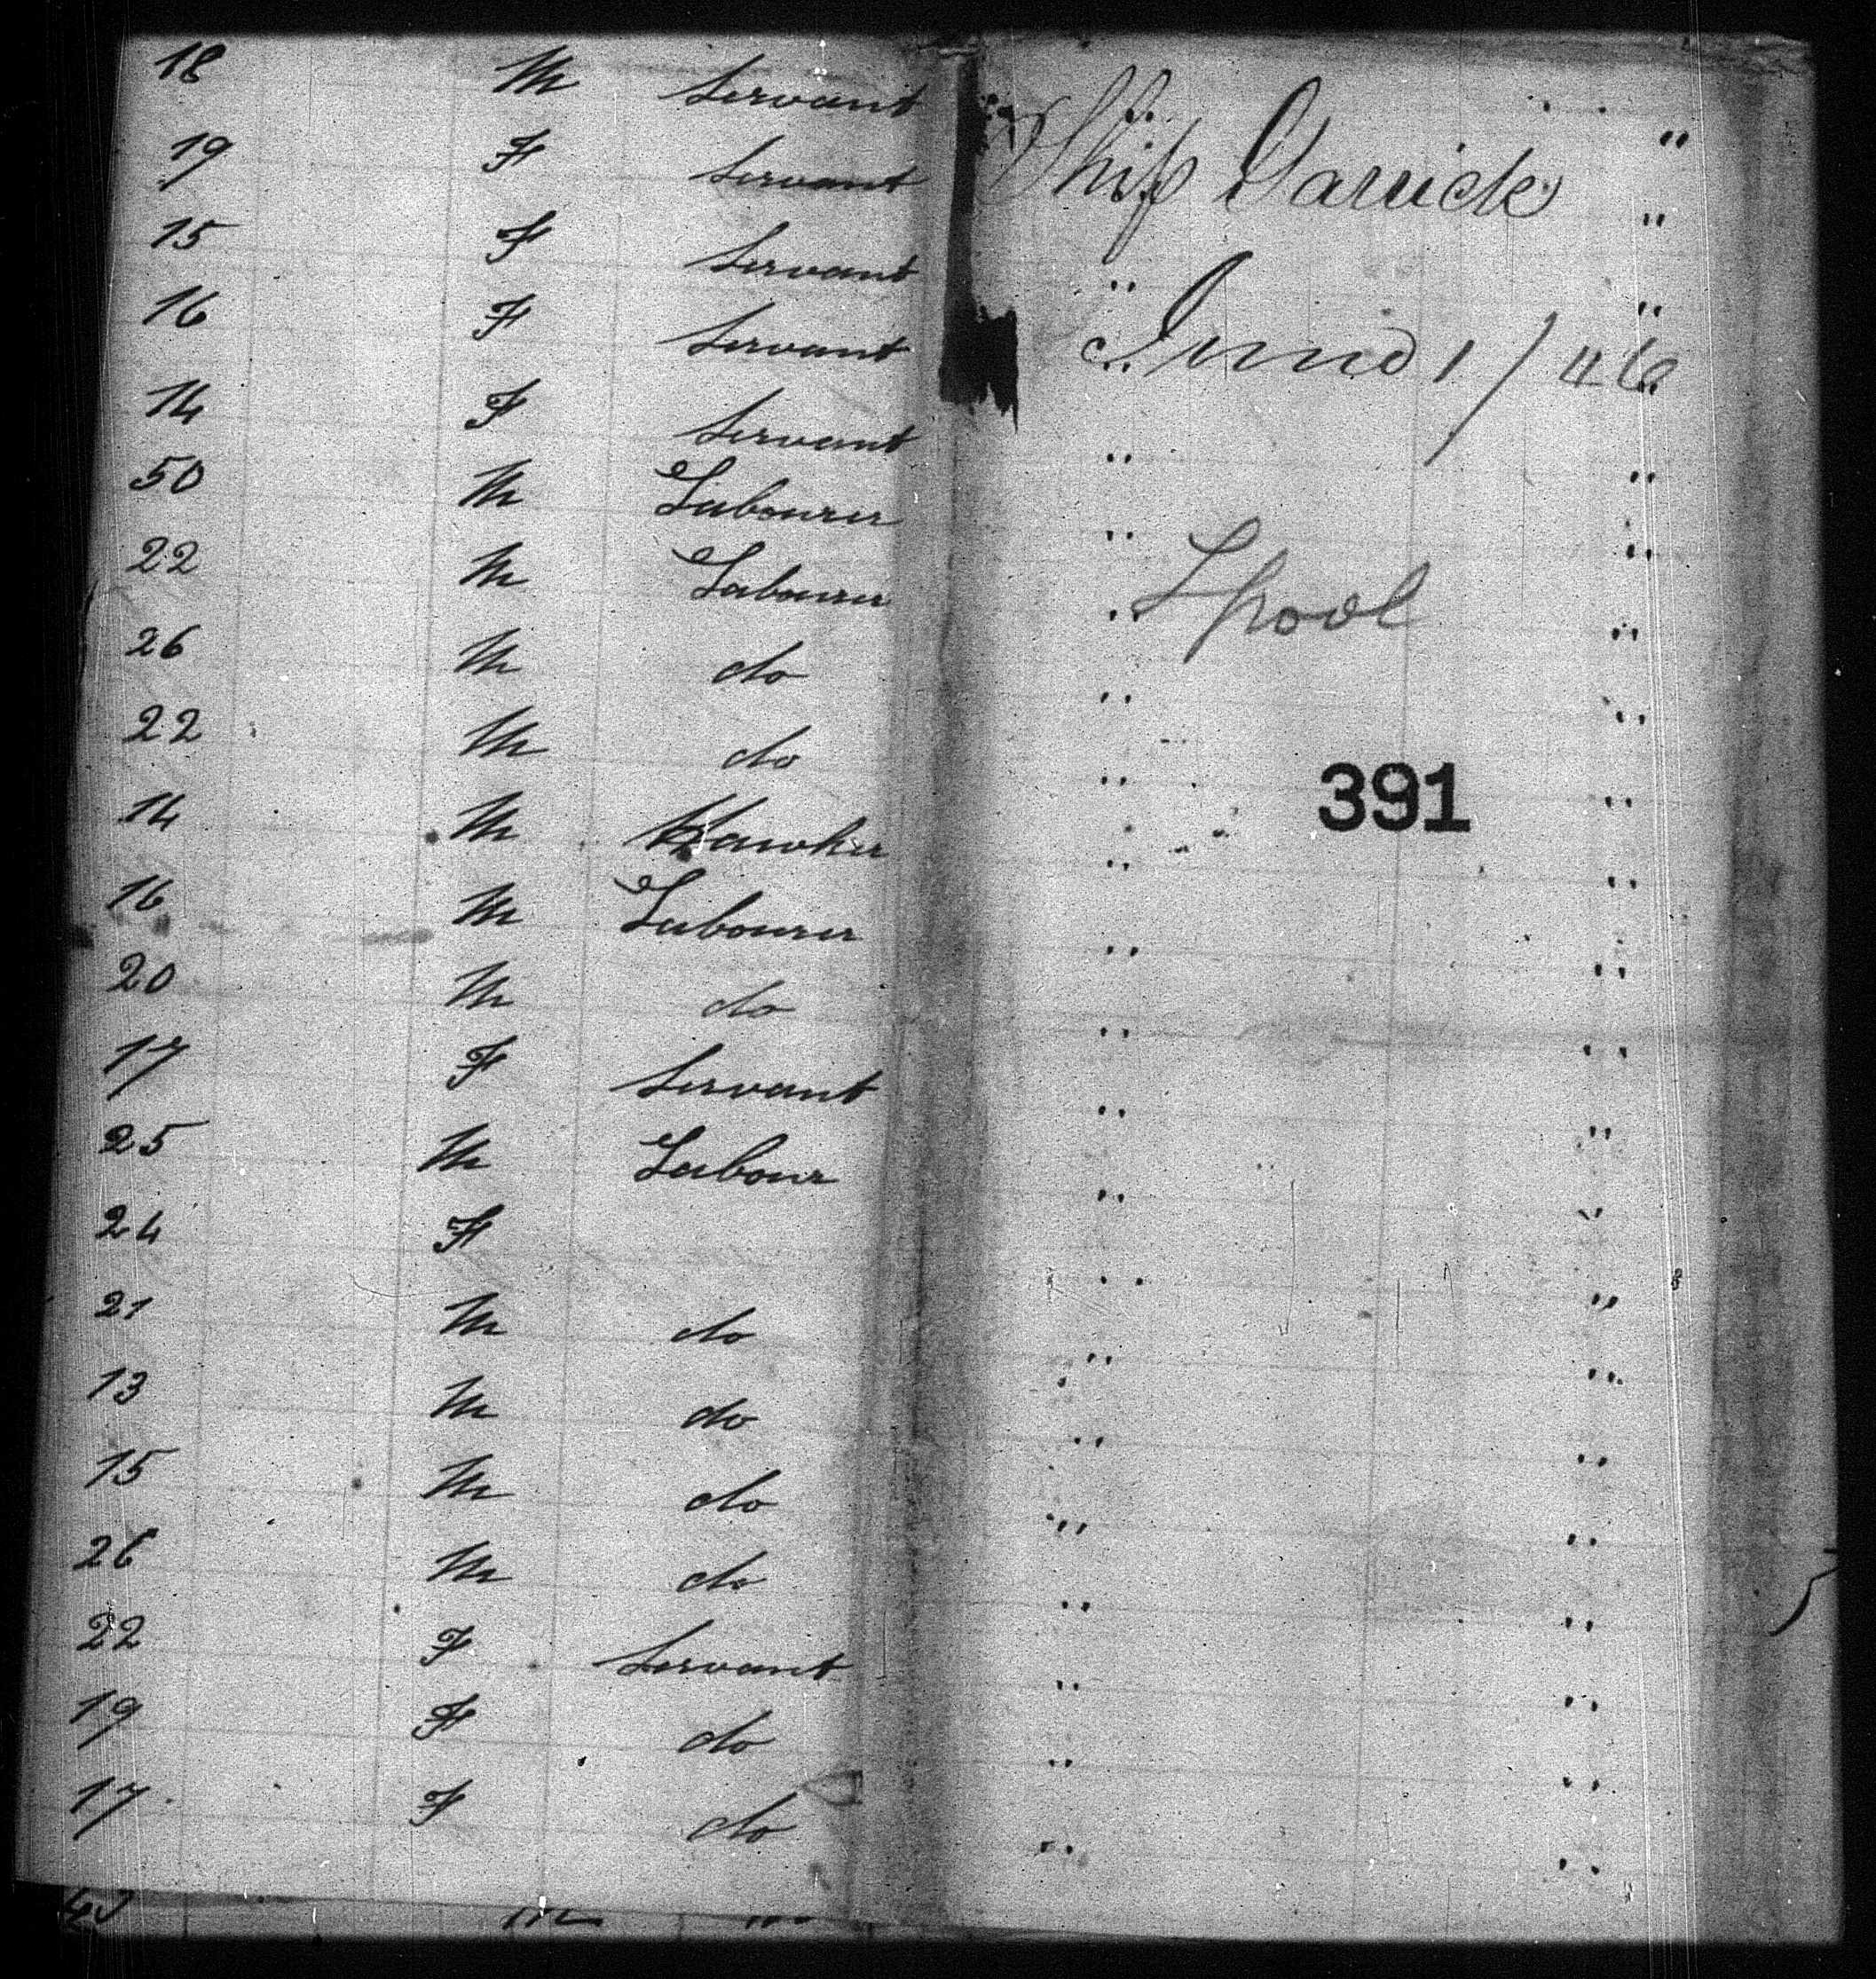 18 M Servant " "
19 F Servant "
15 F Servant " "
16 F Servant " "
14 F Servant " "
50 M Labourer " "
22 M Labourer " "
26 M do " "
22 M do " "
14 M Hawker " "
16 M Labourer " "
20 M do " "
17 F Servant " "
25 M Labour " "
24 F " "
21 M do " "
13 M do " "
15 M do " "
26 M do " "
22 F Servant " "
19 F do " "
17 F do " "
Ship Garrick
June 1/46
Lpool
391